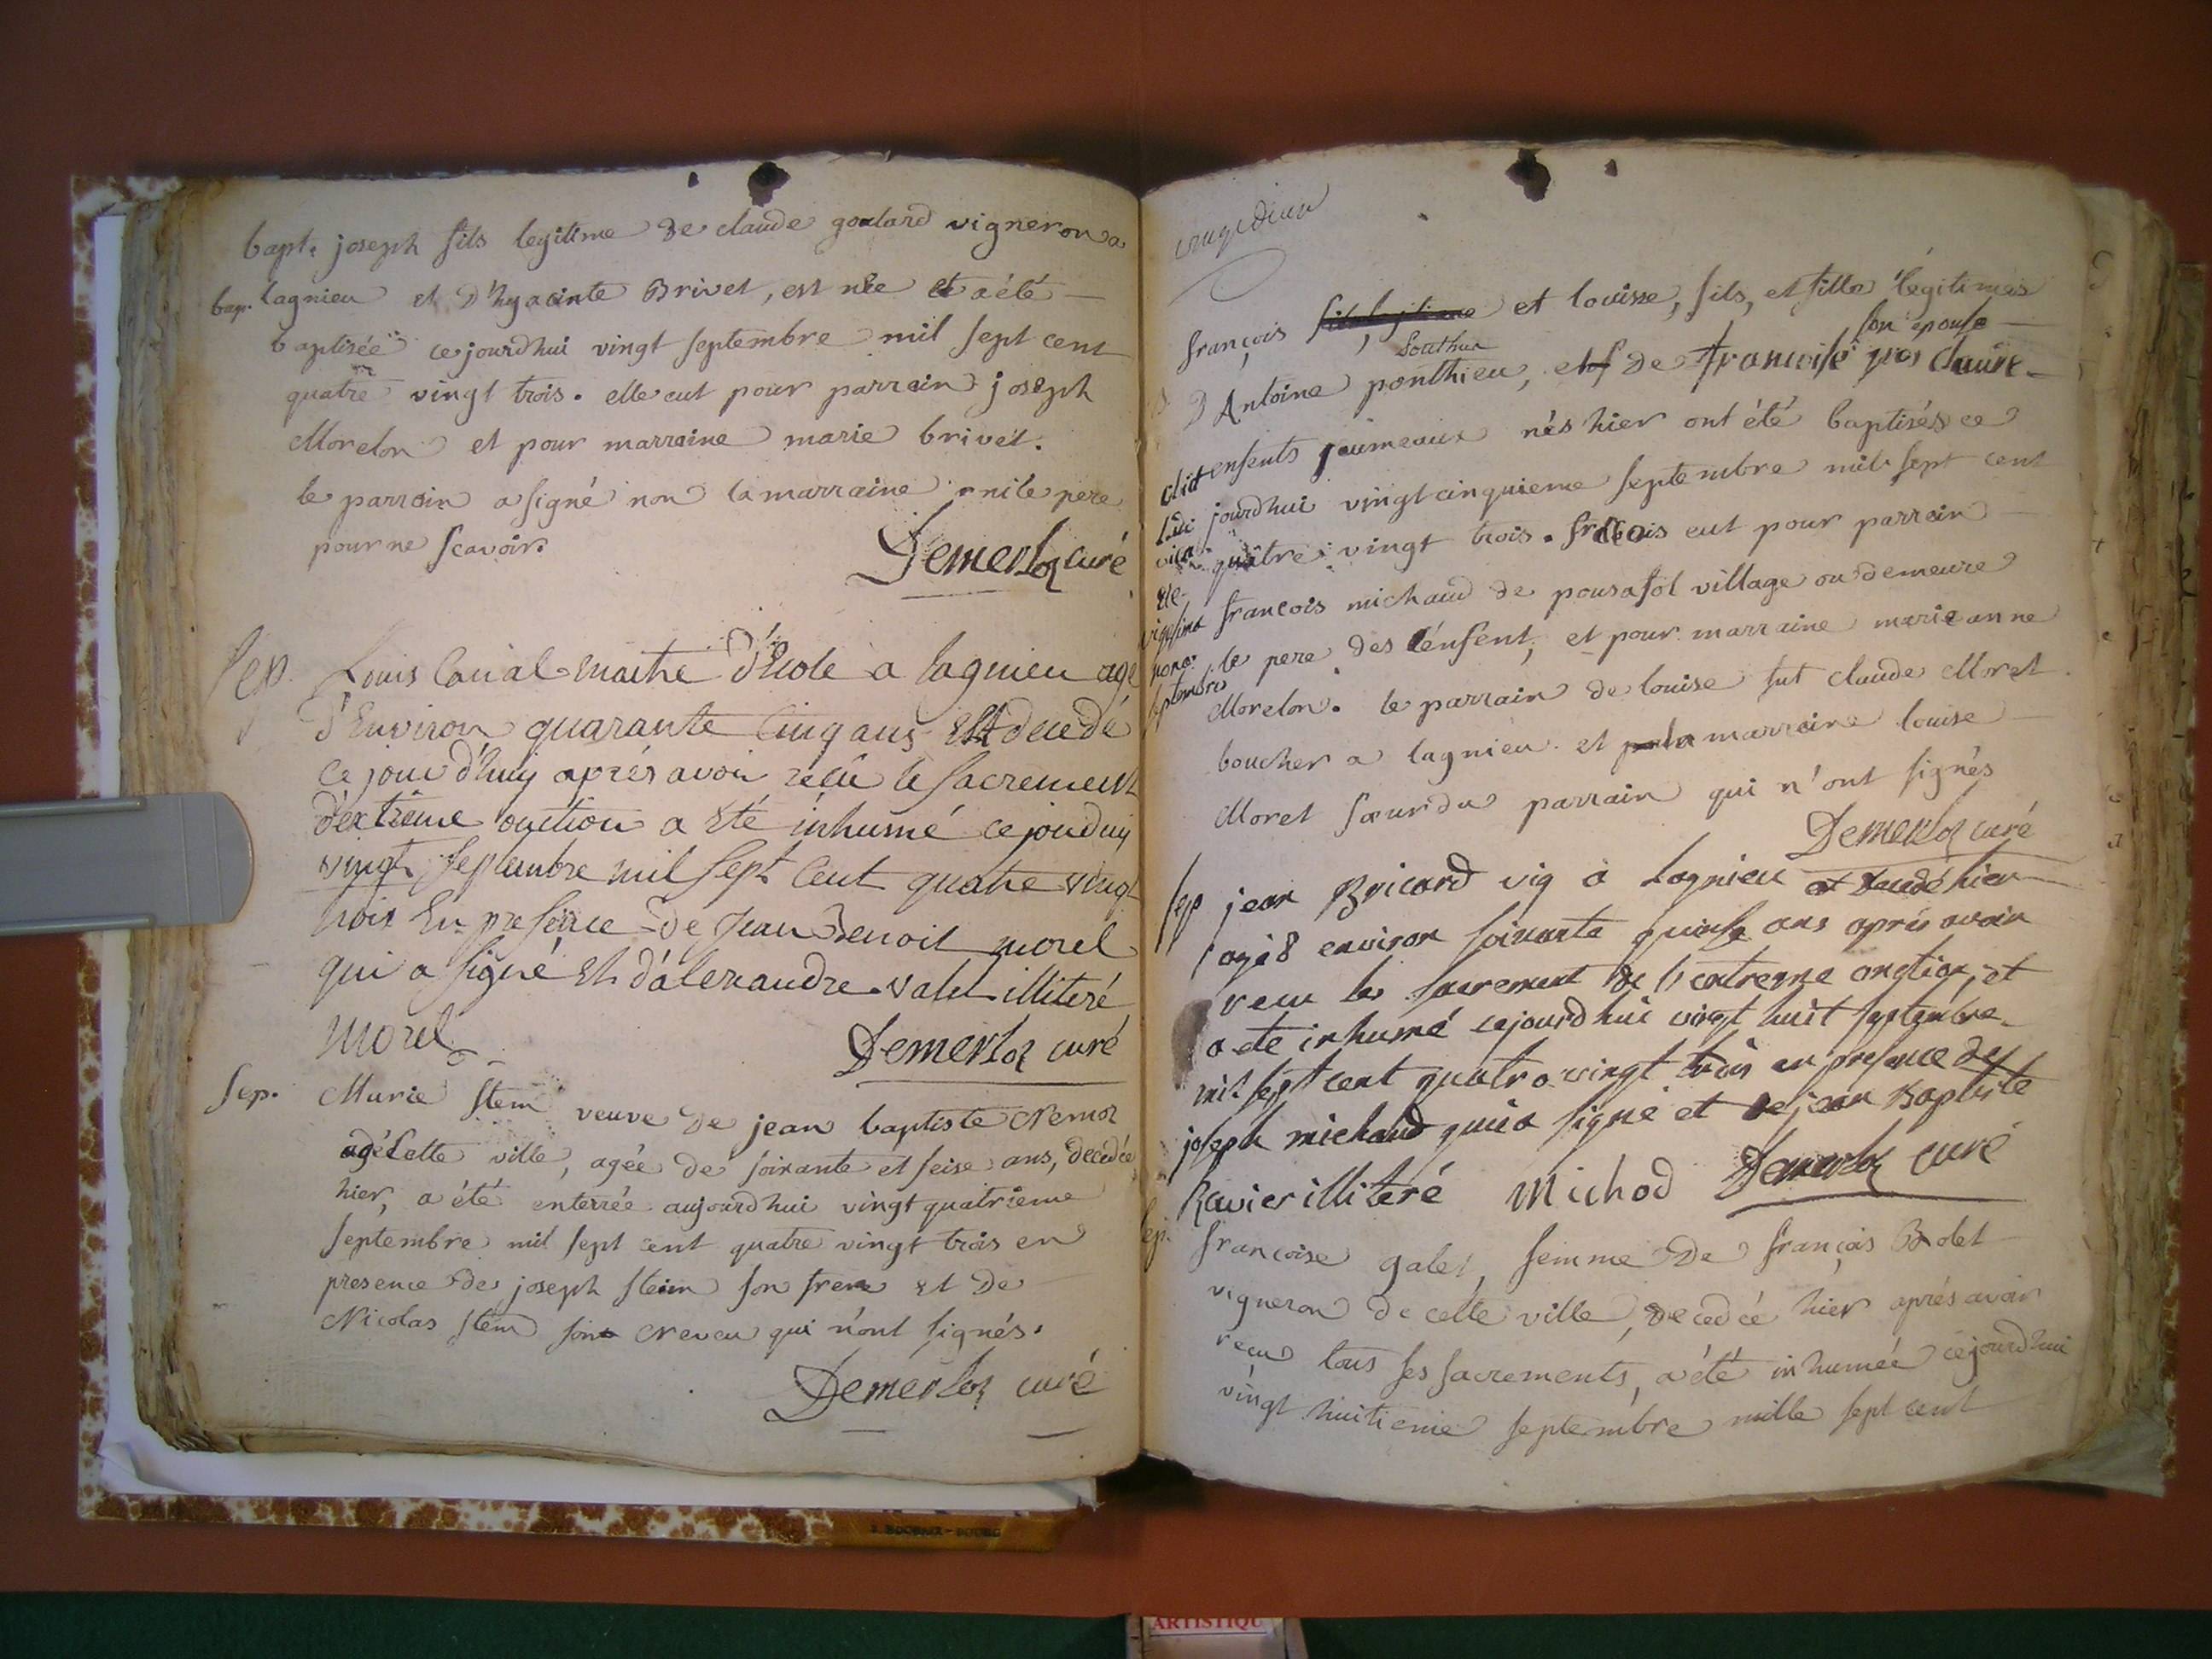 bapt. joseph fils legitime de claude goulard vigneron a
bap. lagnieu et d'hyacinte Brivet, est née et a été
baptisée cejourdhui vingt septembre mil sept cent
quatre vingt trois. elle eut pour parrain joseph
Morelon et pour marraine marie brivet.
le parrain a signé non la marraine ni le pere
pour ne scavoir.
Demerloz curé
Sep. Louis maitre d'Ecole a lagnieu agé
d'Environ quarante Cinq ans Est decedé
Ce jour d'huy aprés avoir reçû le sacrement
d'extrême onction a Eté inhumé ce jourduy
vingt septembre mil sept Cent quatre vingt
trois En presence de Jean Benoit morel
qui a signé Et d'alexandre valet illiteré
Morel
Demerloz curé
Sep. Marie Stem veuve de jean baptiste Nemoz
de Cette ville, agée de soixante et seise ans, decedée
hier, a été enterrée aujourdhui vingt quatrieme
septembre mil sept cent quatre vingt trois en
presence de joseph Steim son frere et de
Nicolas Stem son Neveu qui n'ont signés.
Demerloz curé
françois et louise, fils, et fille légitimes
Southua
son épouse
d'Antoine ponthieu, et de francoise
enfents jaumeaux nés hier ont été baptisés ce
jourdhui vingtcinquieme septembre mil sept cent
quatre vingt trois. francois eut pour parrain
francois michaud de pousafol village ou demeure
le pere des enfent, et pour marraine marie anne
Morelon. le parrain de louise fut claude Moret
boucher a lagnieu. et la marraine louise
Moret sœur du parrain qui n'ont signés
obiit
ludo
vica
die
vigesima
nona
septembris
Demerloz curé
sep jean Bricard vig a Lagnieu decedé hier
agé d environ soixante quinse ans aprés avoir
recu les sacrement de l'extreme onction, et
a ete inhumé cejourdhui vingt huit septembre
mil sept cent quatre vingt trois en presence de
joseph michaud qui a signé et de jean Baptiste
Ravier illiteré Michod Demerloz curé
sep. francoise galet, femme de françois Bolet
vigneron de cette ville, decedée hier aprés avoir
recu tous ses sacrements, a été inhumée cejourdhui
vingt huitieme septembre mille sept cent
ARTISTIQU